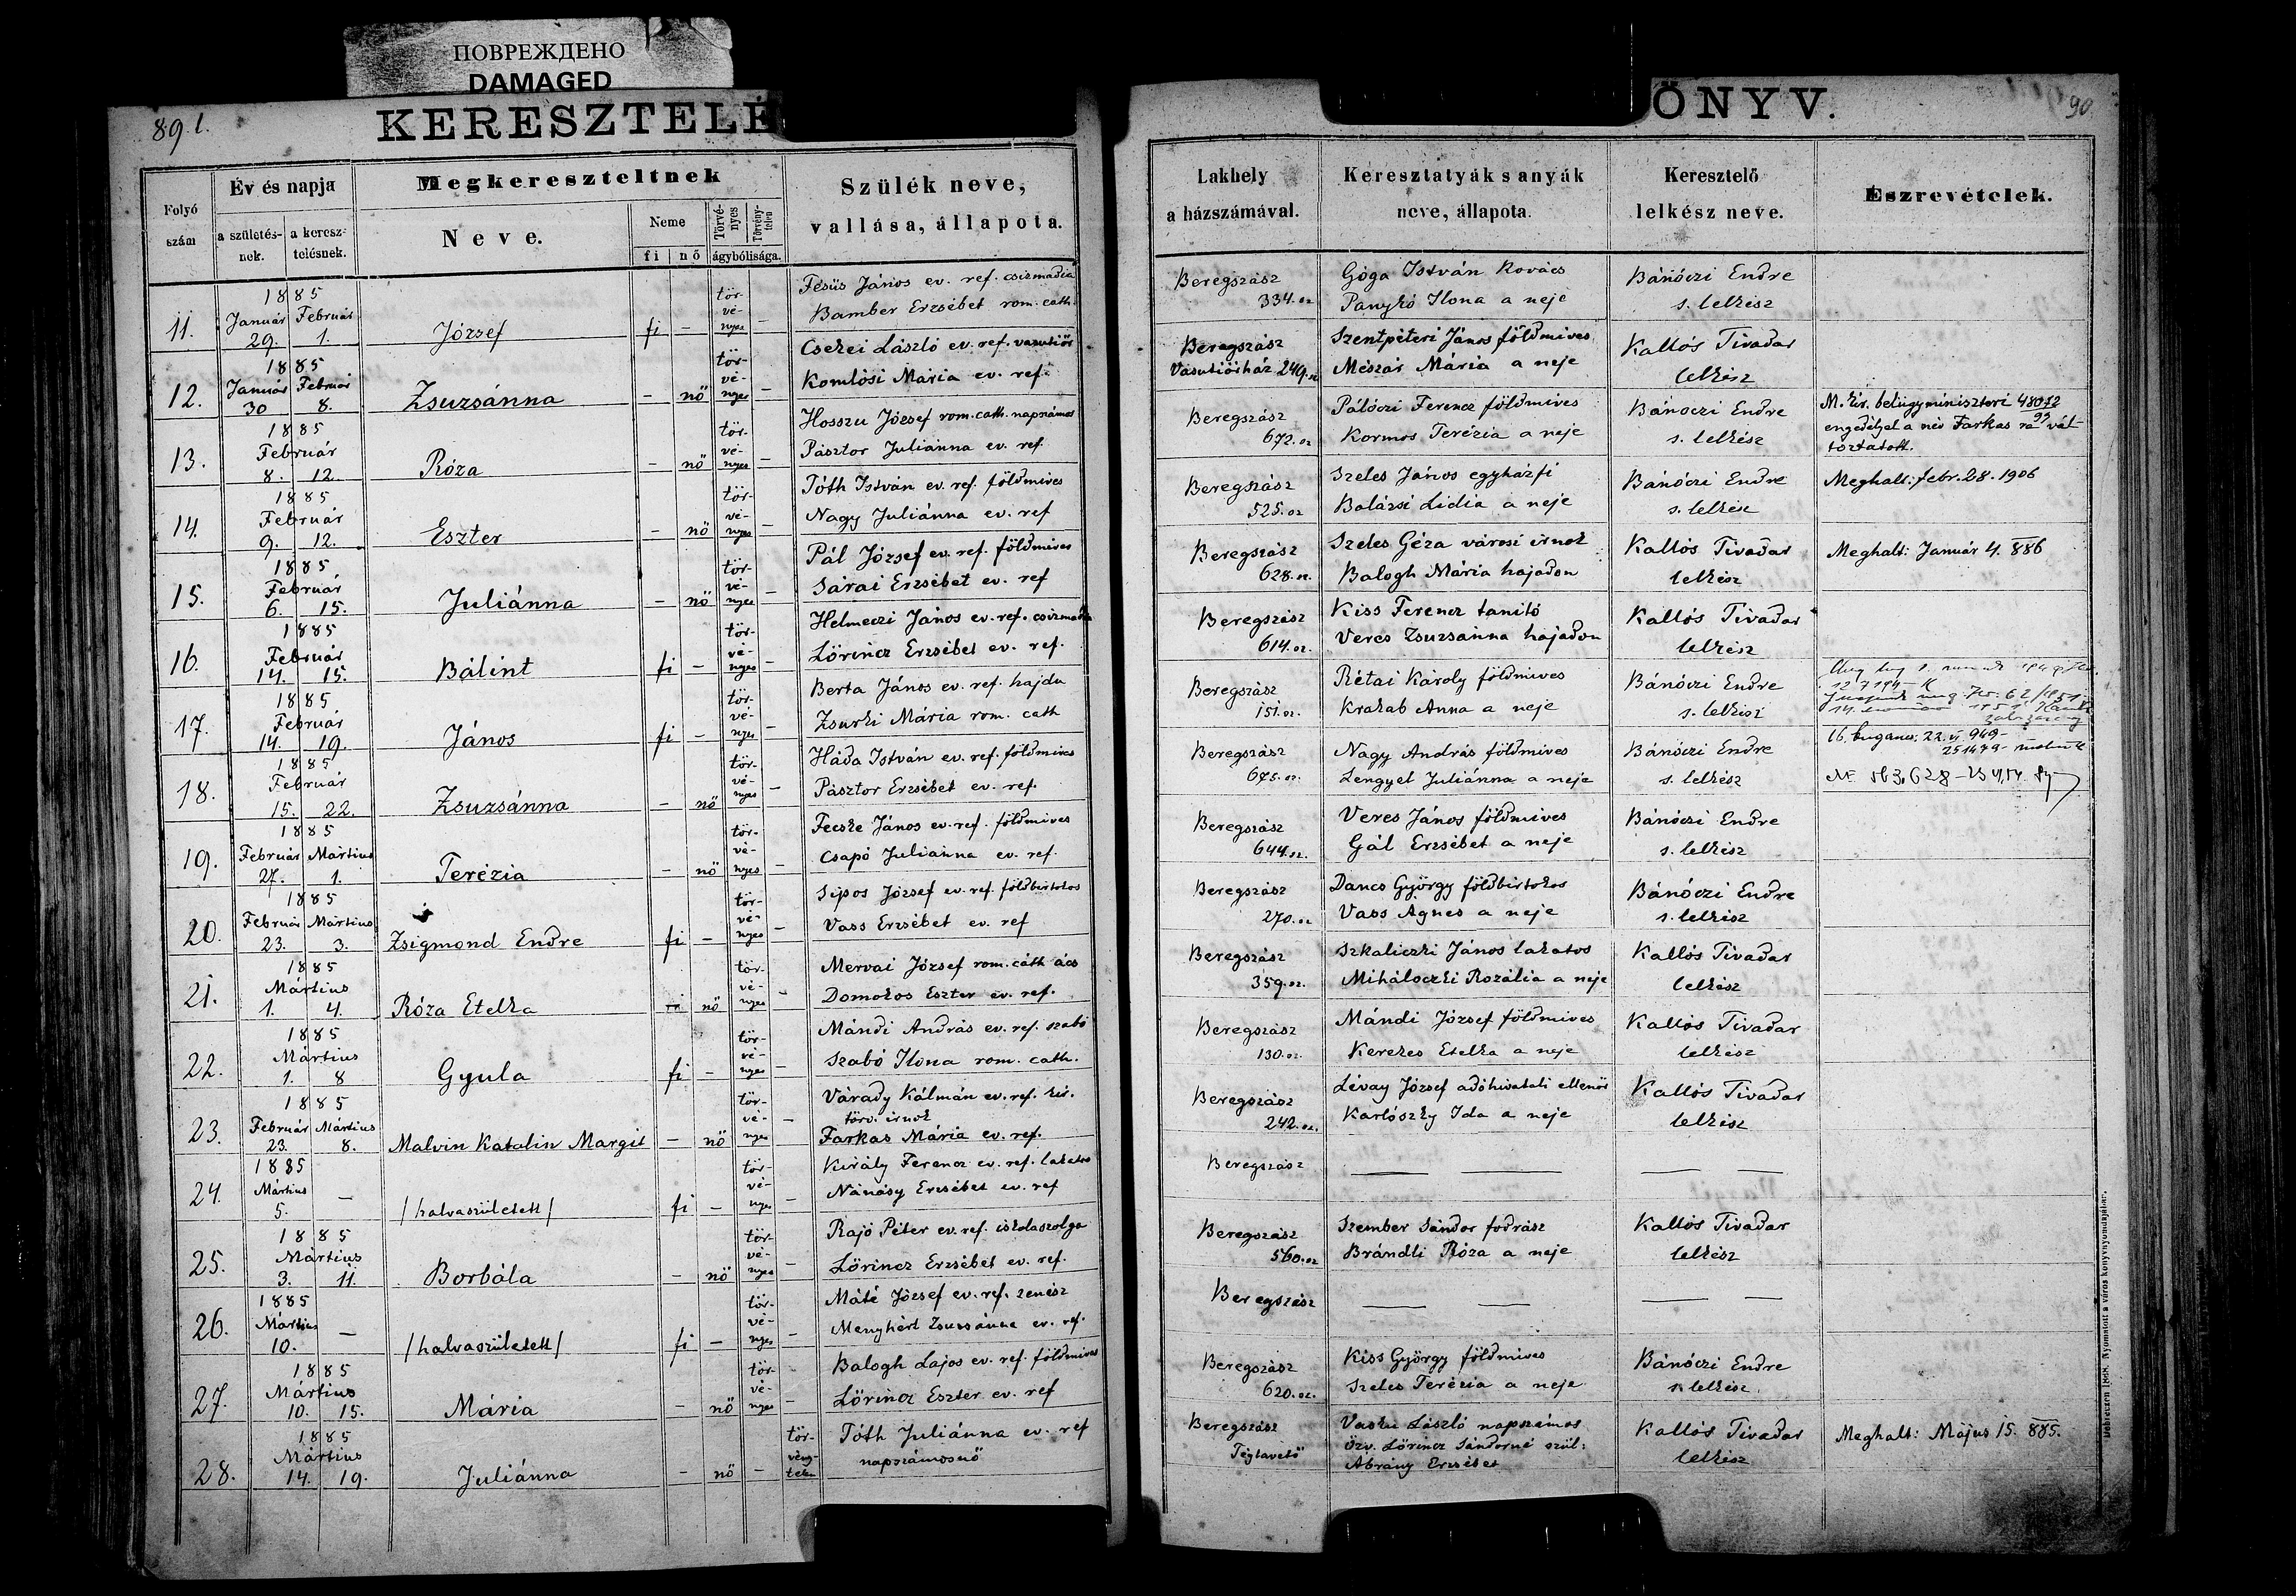 ПОВРЕЖДЕНО
DAMAGED
89 l.
KERESZTELÉ
ÖNYV.
90
Folyó szám
Év és napja
a születés-nek.
a keresz-telésnek.
Megkereszteltnek
Neve.
Neme
fi nő
Törvé-nyes Törvény-telen
ágybólisága.
Szülék neve,
vallása, állapota.
Lakhely
a házszámával.
Keresztatyák s anyák
neve, állapota.
Keresztelő
lelkész neve.
Észrevételek.
11. 1885 Január 29. Február 1. József fi – tör-vé-nyes –
Fésüs János ev. ref. csizmadia
Bamber Erzsébet rom. cath.
Beregszász 334. sz.
Góga István kovács
Panykó Ilona a neje
Bánóczi Endre
s. lelkész
12. 1885 Január 30 Február 8. Zsuzsánna – nő tör-vé-nyes –
Csekei László ev. ref. vasutiőr
Komlósi Mária ev. ref.
Beregszász Vasutiőrház 249. sz
Szentpéteri János földmives
Mészár Mária a neje
Kallós Tivadar
lelkész
13. 1885 Február 8. 12. Róza – nő tör-vé-nyes –
Hosszu József rom. cath. napszámos
Pásztor Juliánna ev. ref.
Beregszász 672. sz
Pálóczi Ferencz földmives
Kormos Terézia a neje
Bánoczi Endre
s. lelkész
M. kir. belügyminiszteri 48072
engedélyel a név Farkas ra vál-
toztatott.
14. 1885 Február 9. 12. Eszter – nő tör-vé-nyes –
Tóth István ev. ref. földmives
Nagy Juliánna ev. ref
Beregszász 525. sz
Szeles János egyházfi
Balázsi Lidia a neje
Bánóczi Endre
s. lelkész
Meghalt: febr. 28. 1906
15. 1885 Február 6. 15. Juliánna – nő tör-vé-nyes –
Pál József ev. ref. földmives
Sárai Erzsébet ev. ref
Beregszász 628. sz.
Szeles Géza városi irnok
Balogh Mária hajadon
Kallós Tivadar
lelkész
Meghalt: Január 4. 886
16. 1885 Február 14. 15. Bálint fi – tör-vé-nyes –
Helmeczi János ev. ref. csizmadia
Lörincz Erzsébet ev. ref.
Beregszász 614. sz.
Kiss Ferencz tanitó
Veres Zsuzsánna hajadon
Kallós Tivadar
lelkész
17. 1885 Február 14. 19. János fi – tör-vé-nyes –
Berta János ev. ref. hajdu
Zsurki Mária rom. cath
Beregszász 151. sz.
Rétai Károly földmives
Krakab Anna a neje
Bánóczi Endre
s. lelkész
18. 1885 Február 15. 22. Zsuzsánna – nő tör-vé-nyes –
Háda István ev. ref. földmives
Pásztor Erzsébet ev. ref.
Beregszász 675. sz.
Nagy András földmives
Lengyel Juliánna a neje
Bánóczi Endre
s. lelkész
19. 1885 Február 27. Mártius 1. Terézia – nő tör-vé-nyes –
Fecske János ev. ref. földmives
Csapó Juliánna ev. ref.
Beregszász 644. sz.
Veres János földmives
Gál Erzsébet a neje
Bánóczi Endre
s. lelkész
20. 1885 Február 23. Mártius 3. Zsigmond Endre fi – tör-vé-nyes –
Sipos József ev. ref. földbirtokos
Vass Erzsébet ev. ref
Beregszász 270. sz
Dancs György földbirtokos
Vass Ágnes a neje
Bánóczi Endre
s. lelkész
21. 1885 Mártius 1. 4. Róza Etelka nő tör-vé-nyes –
Mervai József rom. cáth ács
Domokos Eszter ev. ref.
Beregszász 359. sz.
Szkaliczki János lakatos
Miháloczki Rozália a neje
Kallós Tivadar
lelkész
22. 1885 Mártius 1. 8 Gyula fi – tör-vé-nyes –
Mándi András ev. ref. szabó
Szabó Ilona rom. cath.
Beregszász 130. sz.
Mándi József földmives
Kerekes Etelka a neje
Kallós Tivadar
lelkész
23. 1885 Február 23. Mártius 8. Malvin Katalin Margit – nő tör-vé-nyes –
Várady Kálmán ev. ref. kir.
törv. irnok
Farkas Mária ev. ref.
Beregszász 242. sz.
Lévay József adóhivatali ellenőr
Karlószky Ida a neje
Kallós Tivadar
lelkész
24. 1885 Mártius 5. – /halvaszületett/ fi – tör-vé-nyes –
Király Ferencz ev. ref. lakatos
Nánásy Erzsébet ev. ref
Beregszász
25. 1885 Mártius 3. 11. Borbála – nő tör-vé-nyes –
Rajó Péter ev. ref. iskolaszolga
Lörincz Erzsébet ev. ref.
Beregszász 560. sz
Szember Sándor fodrász
Brándli Róza a neje
Kallós Tivadar
lelkész
26. 1885 Mártius 10. – /halvaszületett/ fi – tör-vé-nyes –
Máté József ev. ref. zenész
Menyhért Zsuzsánna ev. ref.
Beregszász
27. 1885 Mártius 10. 15. Mária – nő tör-vé-nyes –
Balogh Lajos ev. ref. földmives
Lörincz Eszter ev. ref
Beregszász 620. sz.
Kiss György földmives
Szeles Terézia a neje
Bánóczi Endre
s. lelkész
28. 1885 Mártius 14. 19. Juliánna – nő – tör-vény-telen
Tóth Juliánna ev. ref
napszámosnő
Beregszász Téglavető
László napszámos
özv. Lörincz Sándorné szül:
Ábrány Erzsébet
Kallós Tivadar
lelkész
Meghalt: Május 15. 885.
Debreczen 1868. Nyomatott a város könyvnyomdájában.